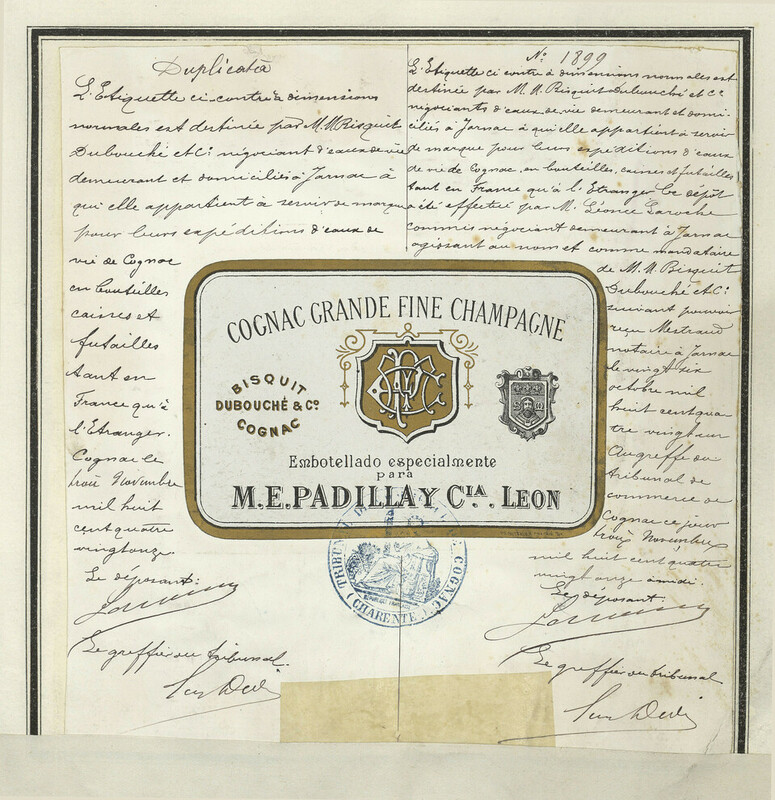 Duplicata
L'Etiquette ci-contre à dimensions
normales est destinée par M.M Bisquit
Dubouché et Cie négociant d'eaux de vie
demeurant et domiciliés à Jarnac à
qui elle appartient à servir de marque
pour leurs expéditions d'eaux de
vie de Cognac
en bouteilles
caisses et
futailles
tant en
France qu'à
l'Etranger.
Cognac le
trois Novembre
mil huit
cent quatre
vingt onze
Le déposant:
Le greffier du tribunal.
No 1899
L'Etiquette ci contre à dimensions normales est
destinée par M. M. Bisquit Dubouché et Cie
négociants d'eaux de vie demeurant et domi-
ciliés à Jarnac à qui elle appartient à servir
de marque pour leurs expéditions d'eaux
de vie de Cognac, en bouteilles, caisses et futailles
tant en France qu'à l'Etranger Ce dépôt
a été effectué par M. Léonce Laroche
commis négociant demeurant à Jarnac
agissant au nom et comme mandataire
de M. M. Bisquit
Dubouché et Cie
suivant pouvoir
reçu Mestraud
notaire à Jarnac
le vingt six
octobre mil
huit cent qua
tre vingt
Au greffe du
tribunal de
commerce de
Cognac ce jour
trois Novembre
mil huit cent quatre
vingt onze à midi.
Le déposant.
Le greffier du tribunal
COGNAC GRANDE FINE CHAMPAGNE
BISQUIT
DUBOUCHÉ & Co.
COGNAC
Embotellado especialmente
para
M.E. PADILLA Y CIA. LEON
TRIBUNAL COGNAC
(CHARENTE)